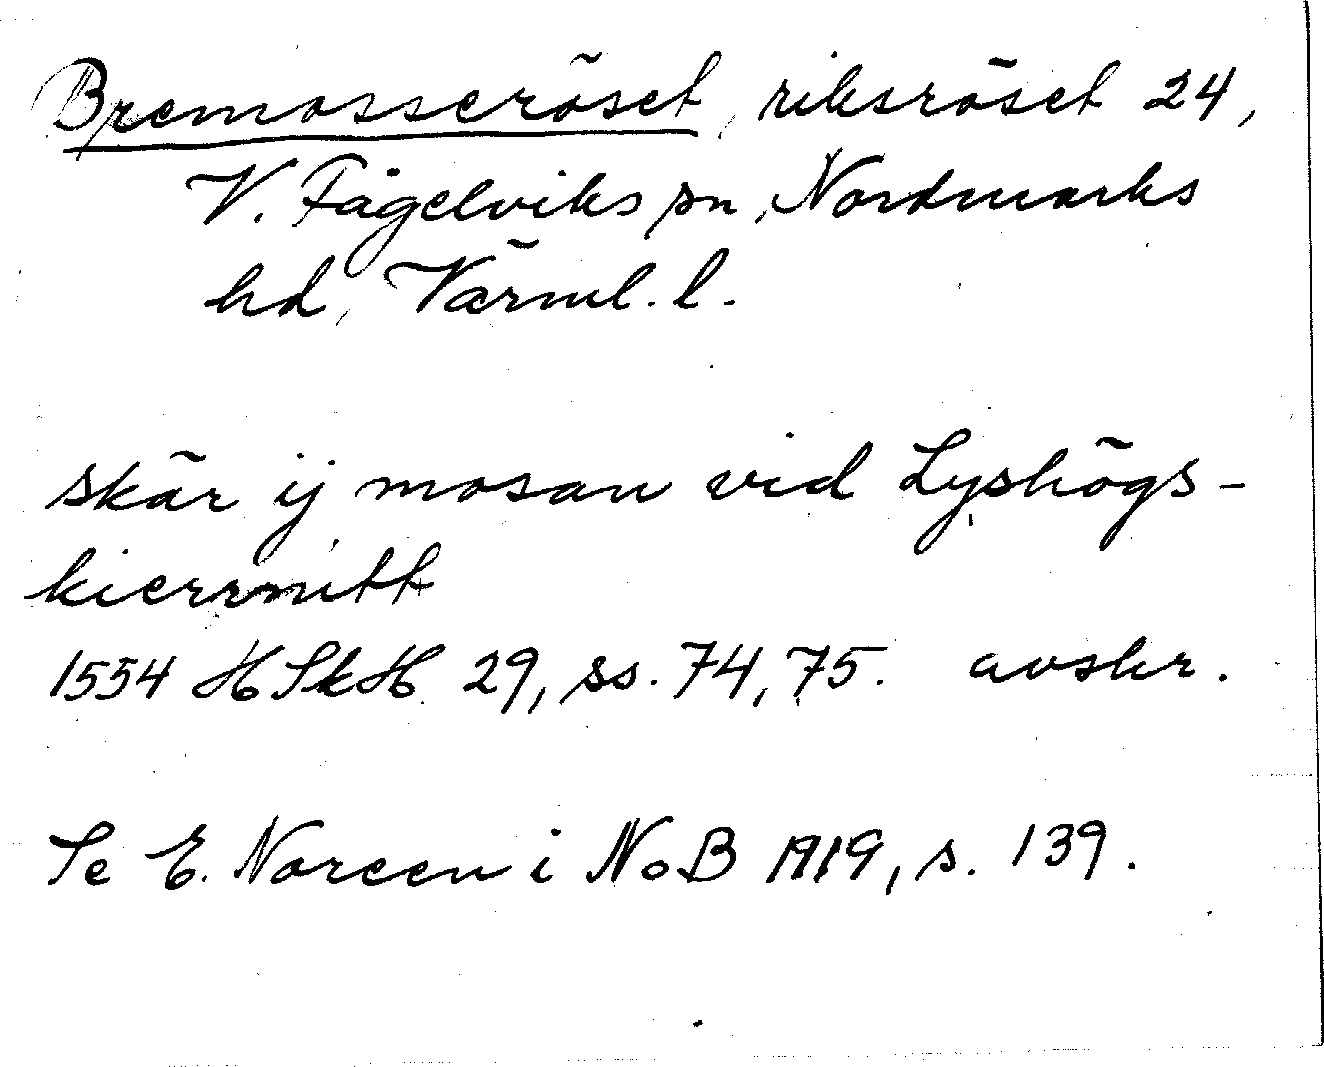 Bremosseröset, riksröset 24,
V. Fågelviks sn, Nordmarks
hd, Värml. l.
skär ij mosan vid Lyshögs-
kierrnitt
1554 HSkH 29, ss. 74, 75. avskr.
Se E. Noreen i NoB 1919, s. 139.